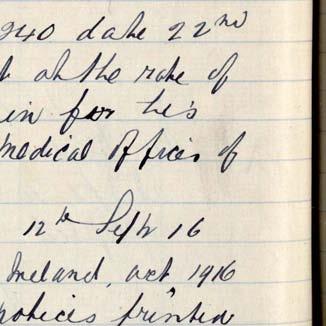 240 date 22nd
at the rate of
in for he's
Medical Officer of
12th Septr 16
Ireland, act 1916
notices printed